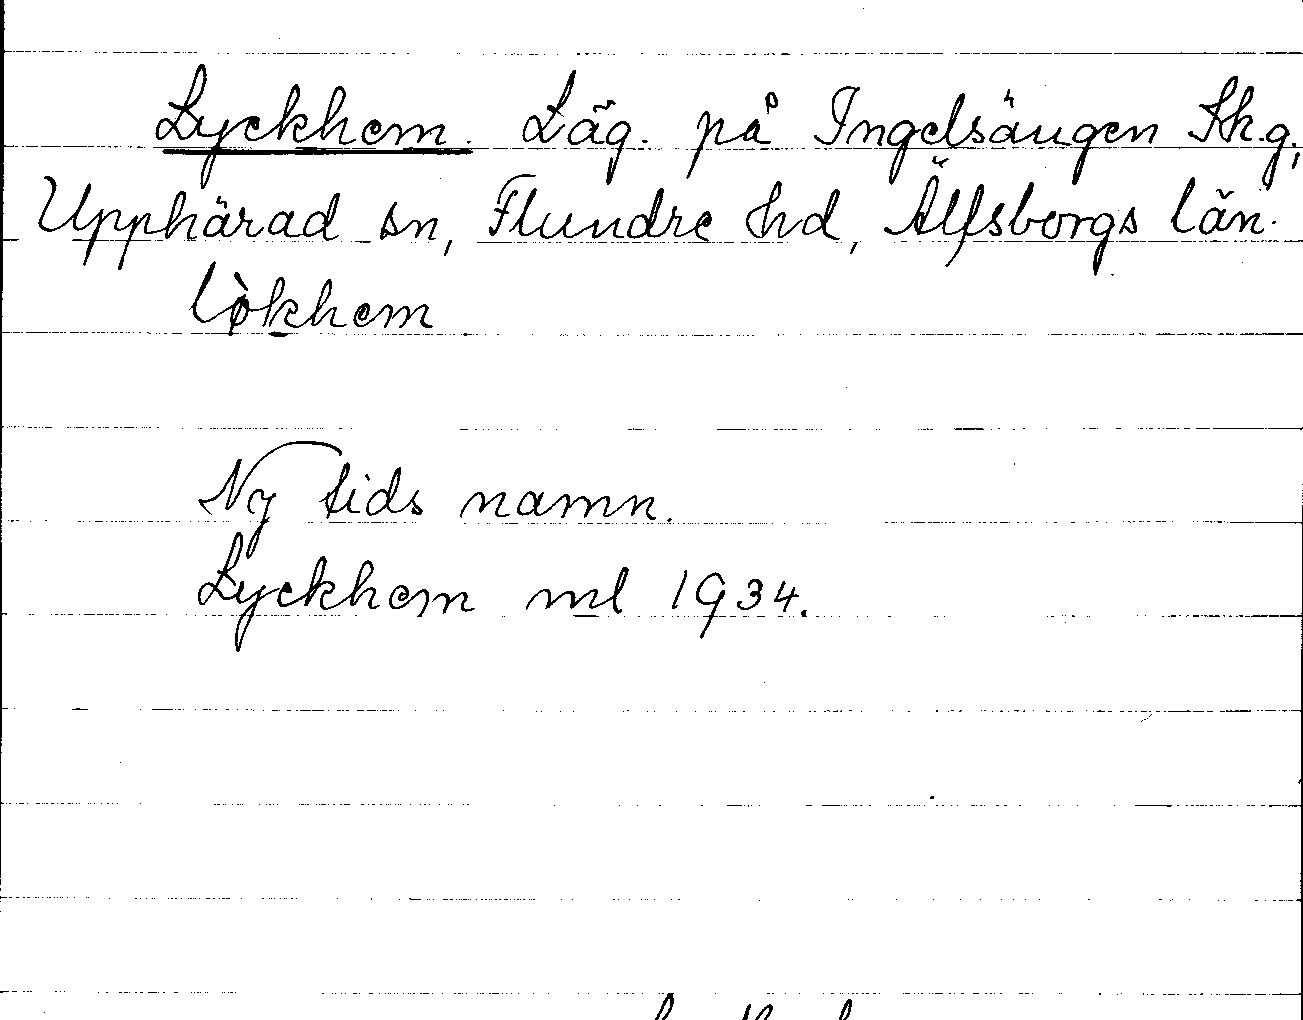 Lyckhem. Läg. på Ingelsängen Sk.g,
Upphärad sn, Flundre hd, Älfsborgs län.
lø̀khem
Ny tids namn.
Lyckhem ml 1934.